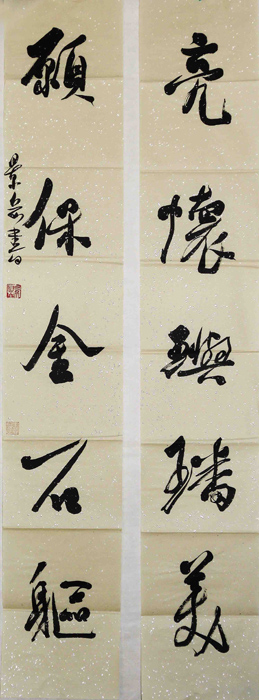 亮懷璵璠美
願保金石軀
景岳書